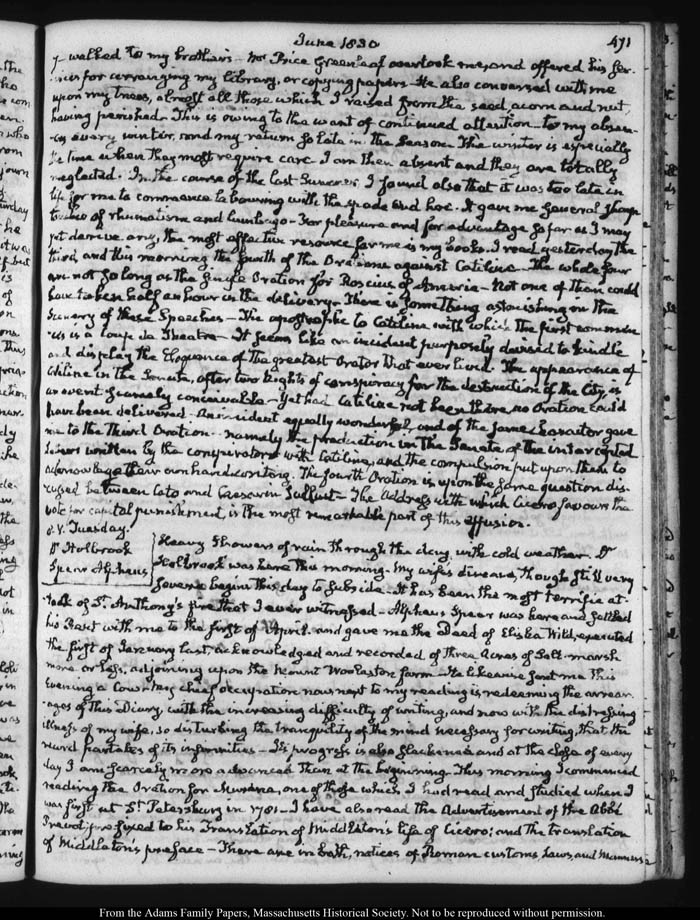 June 1830
471
I walked to my brother's - Mr Price Greenleaf overtook me, and offered his ser-
-vices for arranging my library, or copying papers - He also conversed with me
upon my trees, almost all those which I raised from the seed, acorn and nut,
having perished. This is owing to the want of continued attention - to my absen-
-ces every winter, and my return so late in the Season. The winter is especially
the time when they most require care. I am then absent and they are totally
neglected. In the course of the last Summer I found also that it was too late in
life for me to commence labouring with the spade and hoe. It gave me several sharp
touches of rheumatism and lumbago - For pleasure and for advantage so far as I may
yet derive any, the most effective resource for me is my books. I read yesterday the
third, and this morning the fourth of the Orations against Catiline - The whole four
are not so long as the single Oration for Roscius of America - Not one of them could
have taken half an hour in the delivery - There is something astonishing in the
scenery of these Speeches - The apostrophe to Catiline with which the first commen-
-ces is a Coup de Theatre - It seems like an incident purposely devised to kindle
and display the Eloquence of the greatest Orator that ever lived. The appearance of
Catiline in the Senate, after two nights of conspiracy for the destruction of the City, is
an event scarcely conceivable - Yet had Catiline not been there, no Oration could
have been delivered - An incident equally wonderful, and of the same character gave
rise to the Third Oration - namely the production in the Senate of the intercepted
Letters written by the conspirators with Catiline, and the compulsion put upon them to
acknowledge their own handwriting. The fourth Oration is upon the same question dis-
cussed between Cato and Caesar in Sallust - The Address with which Cicero favours the
vote for capital punishment, is the most remarkable part of this effusion.
Tuesday.
Dr Holbrook
Spear Alpheus
Heavy Showers of rain through the day, with cold weather. Dr
Holbrook was here this morning. My wife's disease, though still very
severe begins this day to subside. It has been the most terrific at-
-tack of St. Anthony's fire that I ever witnessed - Alpheus Spear was here and settled
his Rent with me to the first of April. and gave me the Deed of Elisha Wild, executed
the first of January last, acknowledged and recorded, of Three Acres of Salt-marsh
more or less, adjoining upon the Mount Wollaston farm - He likewise sent me this
Evening a Cow - My chief occupation now next to my reading is redeeming the arrear-
-ages of this Diary, with the increasing difficulty of writing, and now with the distressing
illness of my wife, so disturbing the tranquility of the mind necessary for writing, that the
record partakes of its infirmities - Its progress is also slackened and at the close of every
day I am scarcely more advanced than at the beginning. This morning I commenced
reading the Oration for Murena, one of those which I had read and studied when I
was first at St. Petersburg in 1781 - I have also read the Advertisement of the Abbé
Prevost prefixed to his Translation of Middleton's life of Cicero; and the translation
of Middleton's preface - There are in both, notices of Roman customs Laws, and Manners
From the Adams Family Papers, Massachusetts Historical Society. Not to be reproduced without permission.